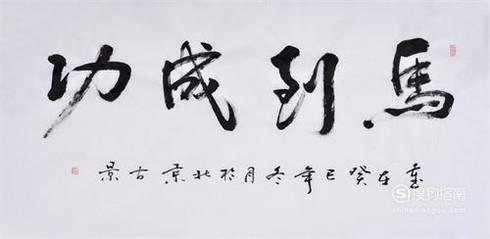 馬到成功
歲在癸巳年冬月於北京古景
搜狗指南
zhinan.sogou.com